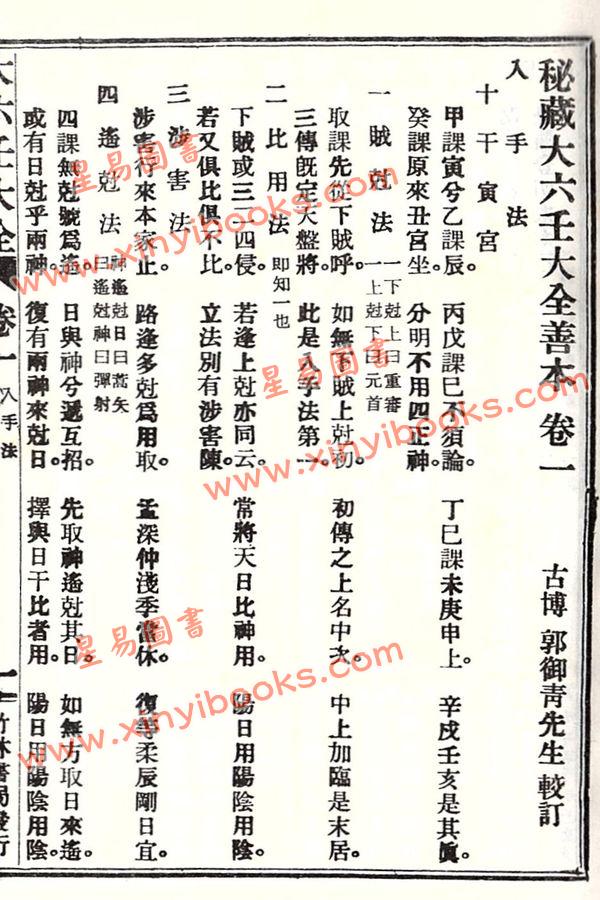 秘藏大六壬大全善本 卷一 古博 郭御青先生 較訂
入手法
十干寅宮
甲課寅兮乙課辰。 丙戊課巳不須論。 丁巳課未庚申上。 辛戌壬亥是其眞
癸課原來丑宮坐 分明不用四正神。
一 賊尅法 一下尅上曰重審 一上尅下曰元首
取課先從下賊呼。 如無下賊上尅初 初傳之上名中次。 中上加臨是末居。
三傳既定天盤將 此是入手法第一。
二 比用法 即知一也
下賊或三二四侵 若逢上尅亦同云。 常將天日比神用 陽日用陽陰用陰。
若又俱比俱不比。 立法別有涉害陳。
三 涉害法
涉害行來本家止 路逢多尅爲用取 孟深仲淺季當休 復等柔辰剛日宜
四 遙尅法 神遙尅日曰蒿矢 曰遙尅神曰彈射
四課無尅號爲遙。 日與神兮遞互招。 先取神遙尅其日 如無方取日來遙。
或有日尅乎兩神。 復有兩神來尅日。 擇與日干比者用。 陽日用陽陰用陰。
大六壬大全 卷一 入手法 一 竹林書局發行
星易圖書
www.xinyibooks.com
星易圖書
www.xinyibooks.com
星易圖書
www.xinyibooks.com